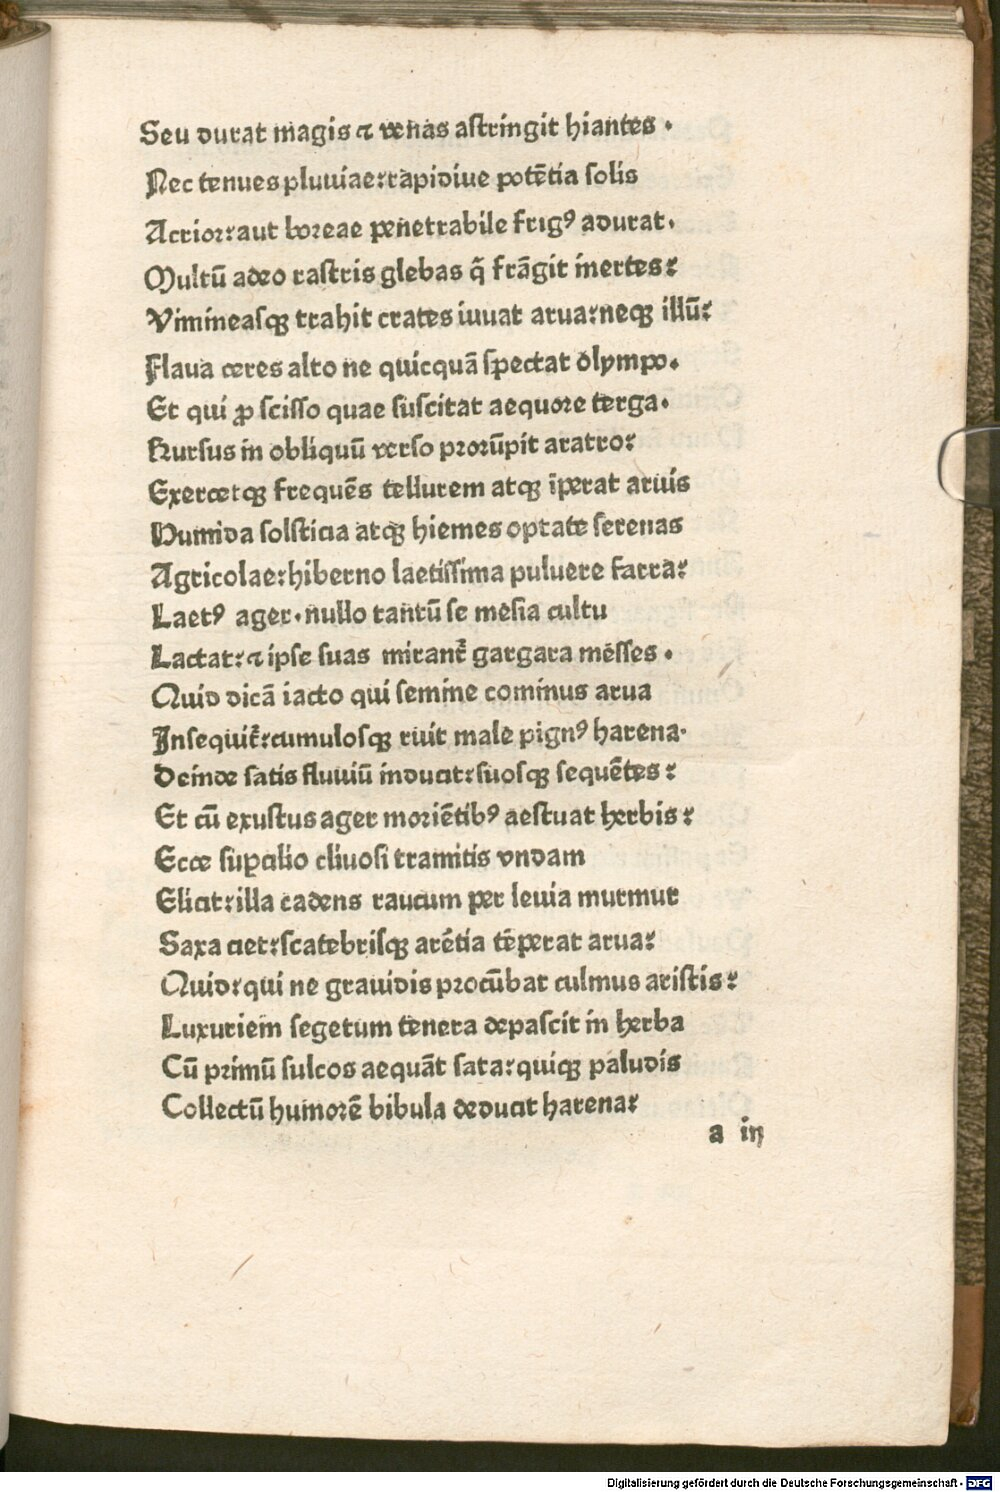 Seu durat magis ⁊ venas astringit hiantes.
Nec tenues pluuiae: rapidiue potētia solis
Acrior: aut boreae penetrabile frigꝰ adurat.
Multū adeo rastris glebas q̄ frāgit inertes:
Vimineasqꝫ trahit crates iuuat arua: neqꝫ illū:
Flaua ceres alto ne quicquā spectat olympo.
Et qui ꝓ scisso quae suscitat aequore terga.
Rursus in obliquū verso prorūpit aratro:
Exercetqꝫ frequēs tellurem atqꝫ īperat aruis
Humida solsticia atqꝫ hiemes optate serenas
Agricolae: hiberno laetissima puluere farra:
Laetꝰ ager. nullo tantū se mesia cultu
Lactat: ⁊ ipse suas mirant᷑ gargara messes.
Quid dicā iacto qui semine cominus arua
Insequit᷑: cumulosqꝫ ruit male pignꝰ harena.
Deinde satis fluuiū inducit: suosqꝫ sequētes:
Et cū exustus ager moriētibꝰ aestuat herbis:
Ecce suꝑcilio cliuosi tramitis vndam
Elicit: illa cadens raucum per leuia murmur
Saxa ciet: scatebrisqꝫ arētia tēperat arua:
Quid: qui ne grauidis procūbat culmus aristis:
Luxuriem segetum tenera depascit in herba
Cū primū sulcos aequāt sata: quiqꝫ paludis
Collectū humorē bibula deducit harena:
a iij
Digitalisierung gefördert durch die Deutsche Forschungsgemeinschaft - DFG